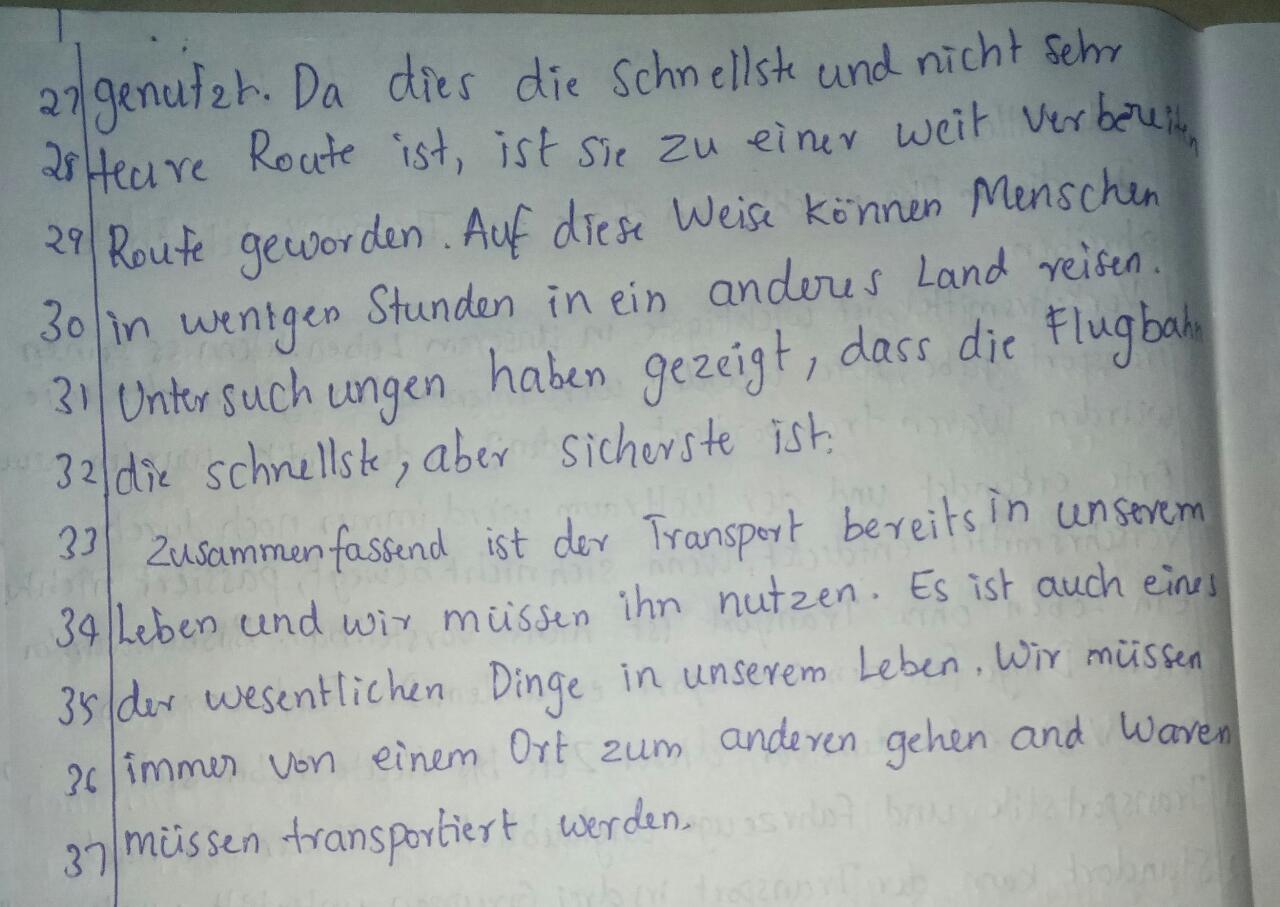 27 genutzt. Da dies die Schnellste und nicht sehr
28 teure Route ist, ist sie zu einer weit verbereiten
29 Route geworden. Auf diese Weise können Menschen
30 in wenigen Stunden in ein anderes Land reisen.
31 Untersuchungen haben gezeigt, dass die Flugbahn
32 die schnellste, aber sicherste ist.
33 Zusammenfassend ist der Transport bereits in unserem
34 Leben und wir müssen ihn nutzen. Es ist auch eines
35 der wesentlichen Dinge in unserem Leben. Wir müssen
36 immer von einem Ort zum anderen gehen and Waren
37 müssen transportiert werden.